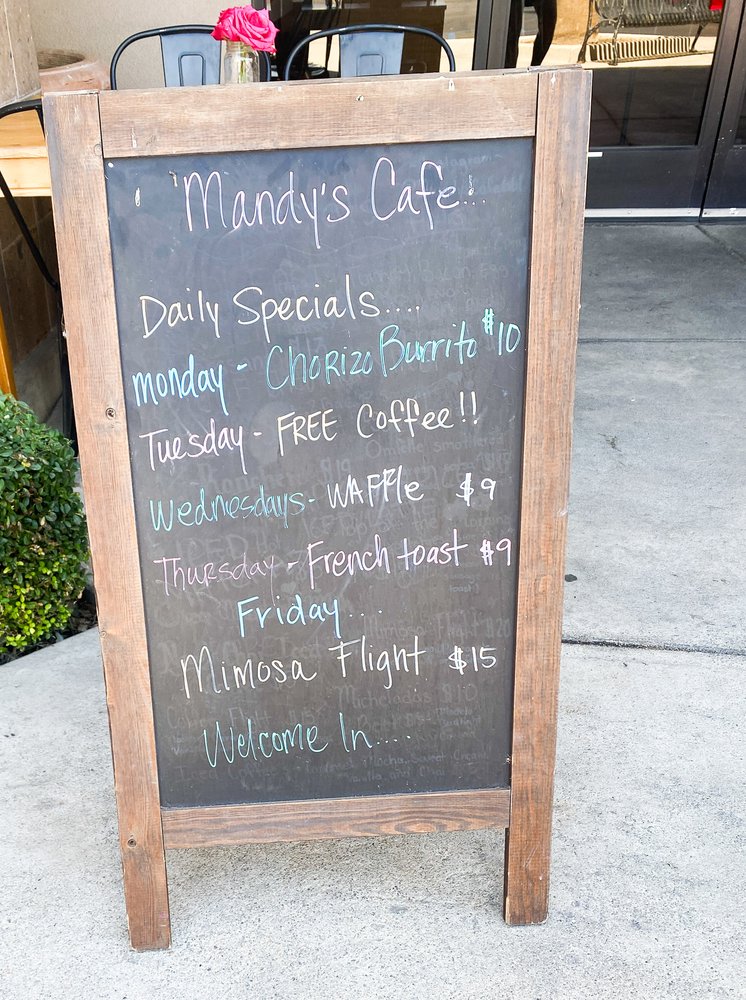 Mandy's Cafe!..
Daily Specials....
Monday - Chorizo Burrito $10
Tuesday - FREE Coffee!!
Wednesdays - WAFFle $9
Thursday - French toast $9
Friday...
Mimosa Flight $15
Welcome In.....